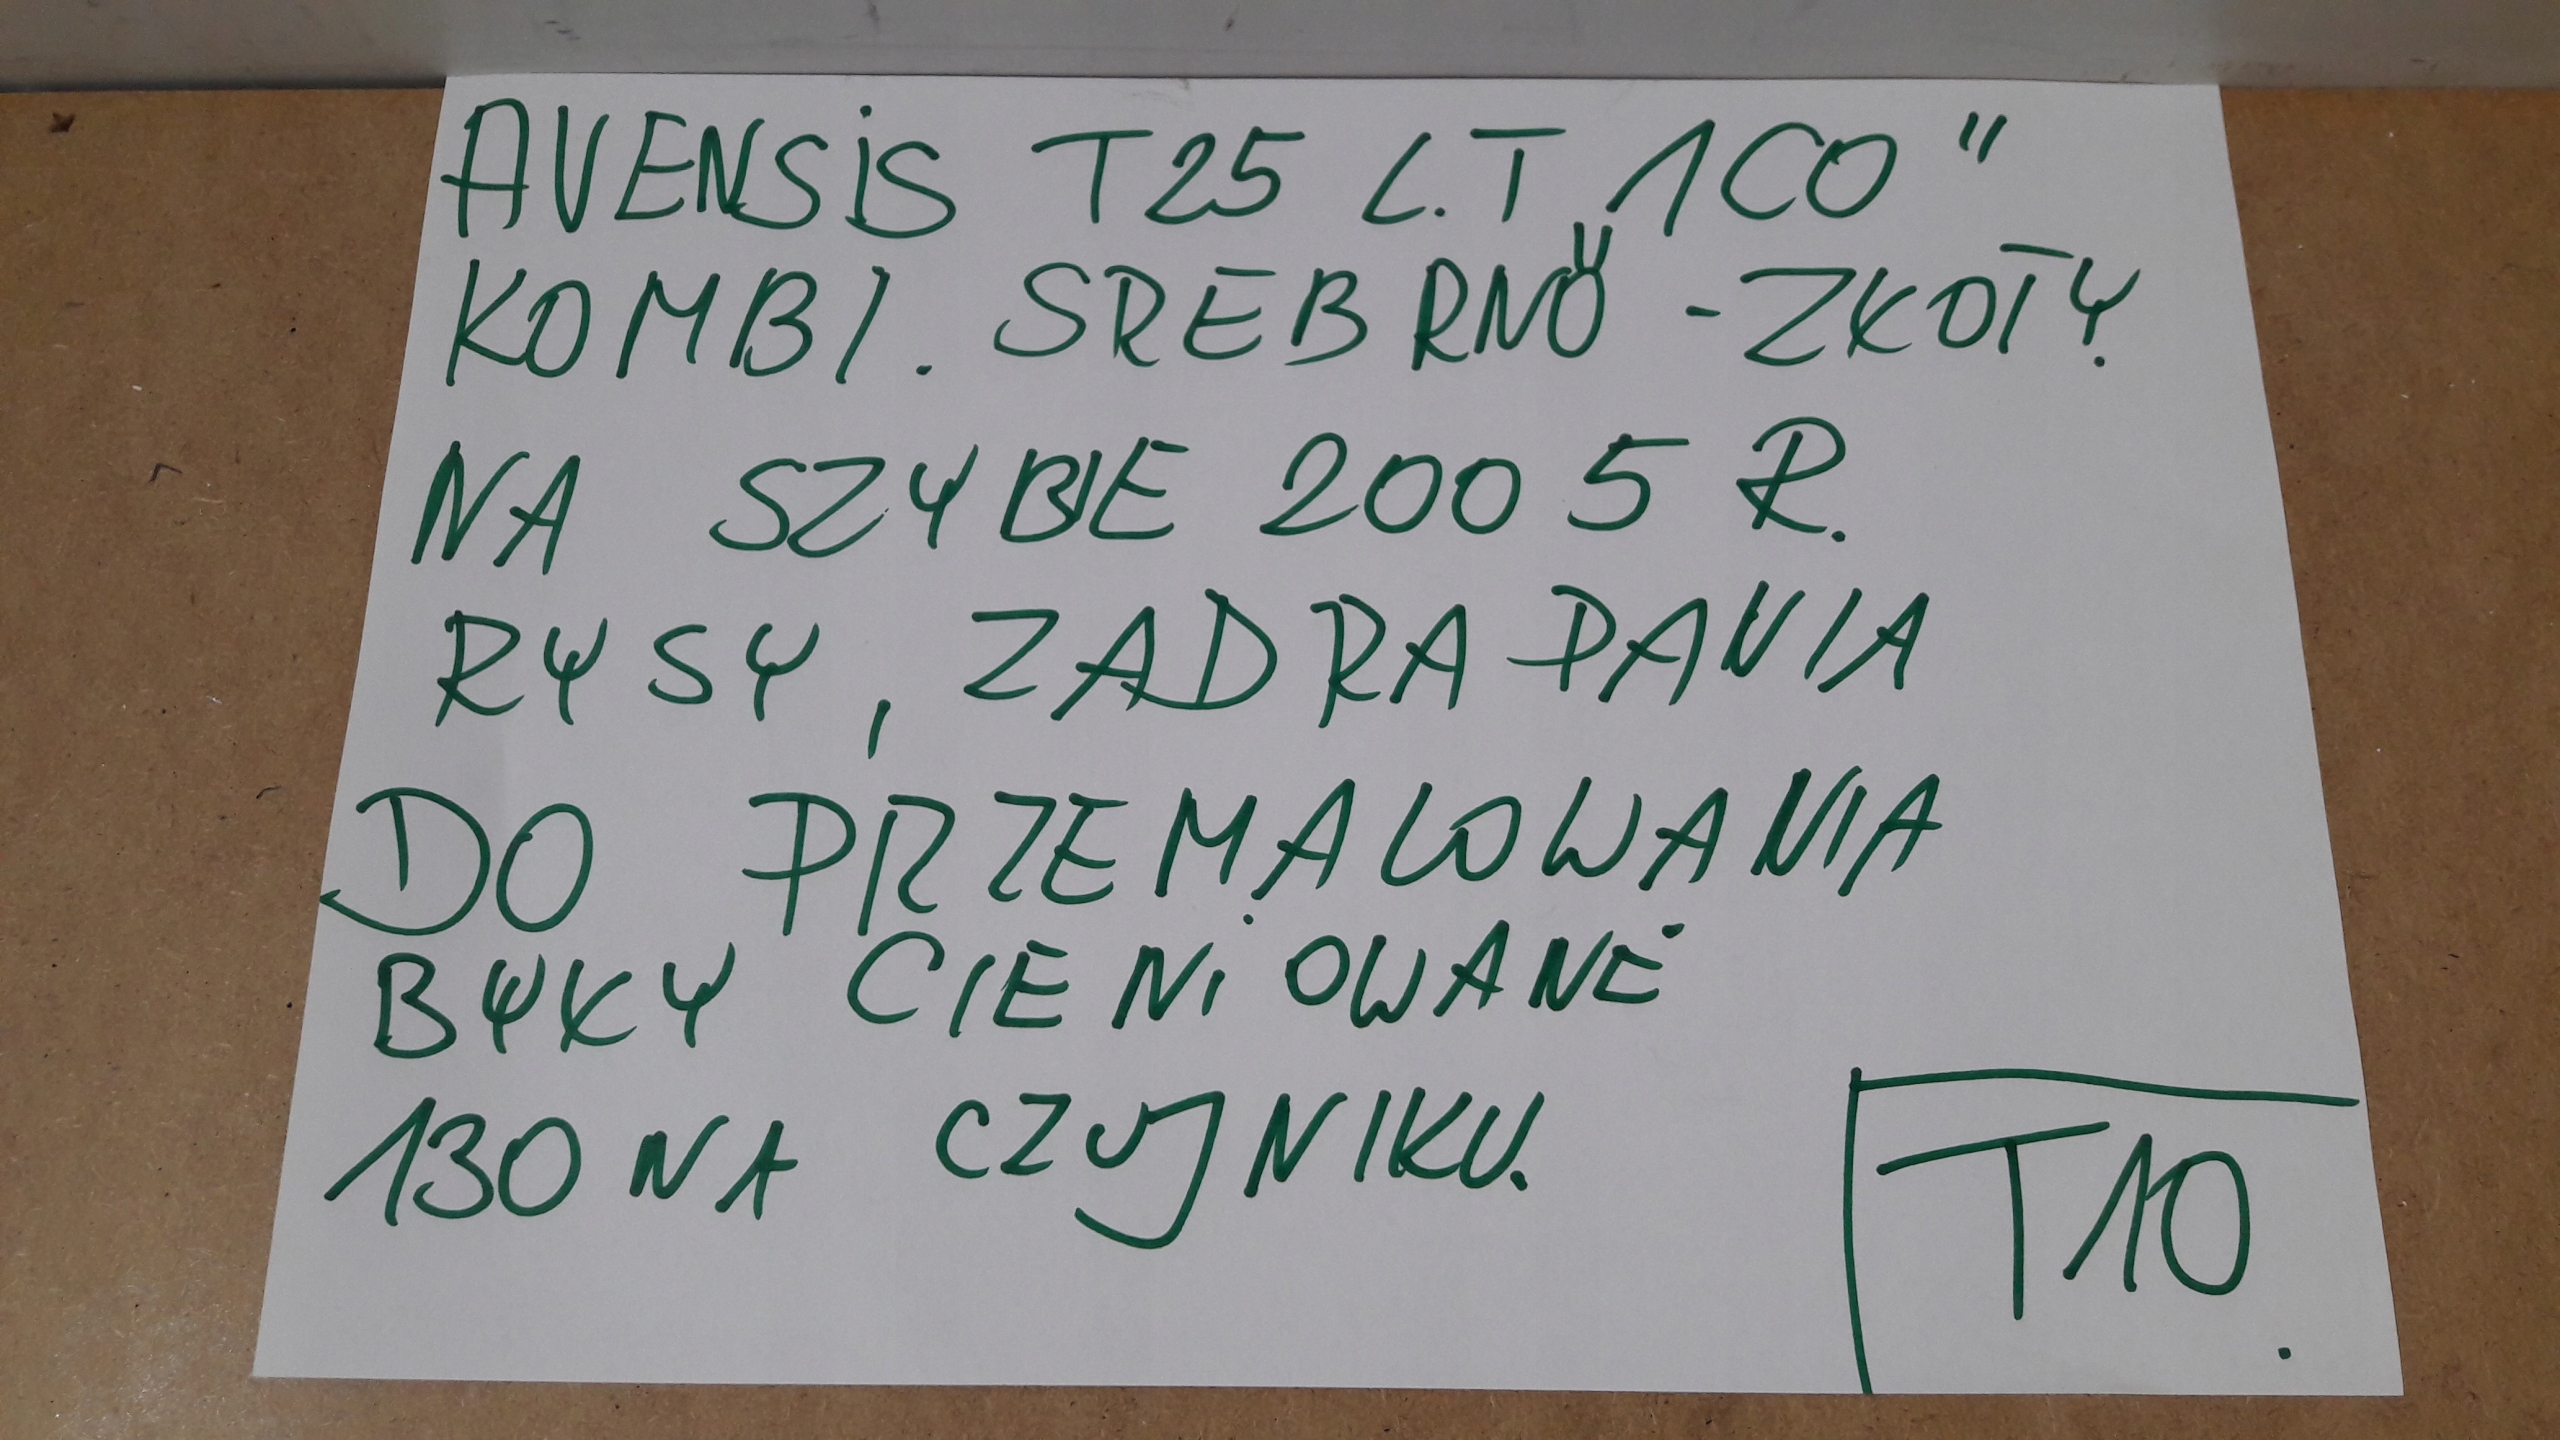 AVENSiS T25 L.T „1CO"
KOMBI. SREBRNO - ZŁOTY.
NA SZYBIE 2005 R.
RYSY, ZADRAPANIA
DO PRZEMALOWANIA
BYŁY CIENIOWANE
130 NA CZUJNIKU.
T10.